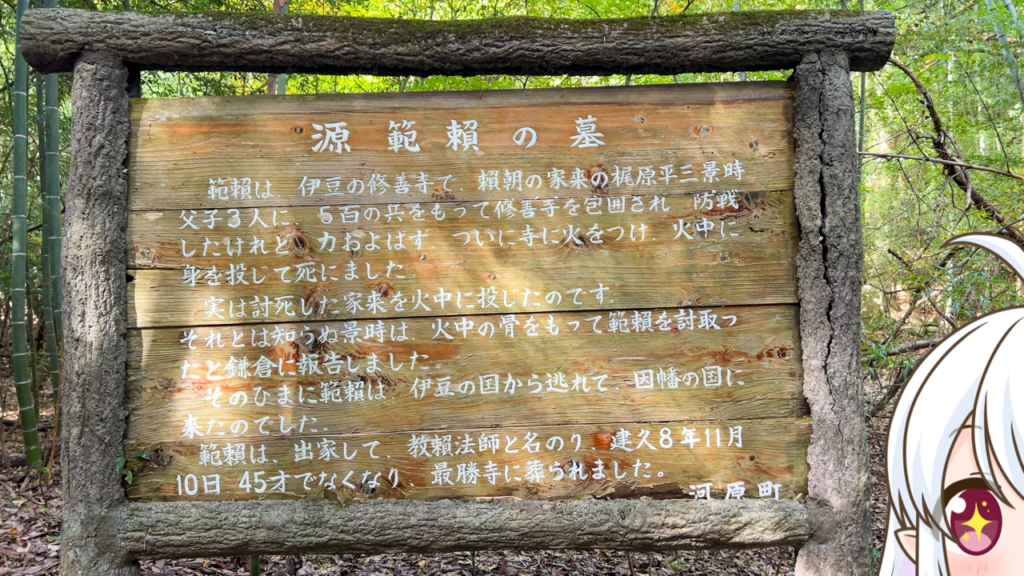 源範頼の墓
範頼は、伊豆の修善寺で、頼朝の家来の梶原平三景時
父子3人に、5百の兵をもって修善寺を包囲され、防戦
したけれど、力およばず、ついに寺に火をつけ、火中に
身を投じて死にました。
実は討死した家来を火中に投じたのです。
それとは知らぬ景時は、火中の骨をもって範頼を討取っ
たと鎌倉に報告しました。
そのひまに範頼は、伊豆の国から逃れて、因幡の国に
来たのでした。
範頼は、出家して、教頼法師と名のり、建久8年11月
10日 45才でなくなり、最勝寺に葬られました。
河原町